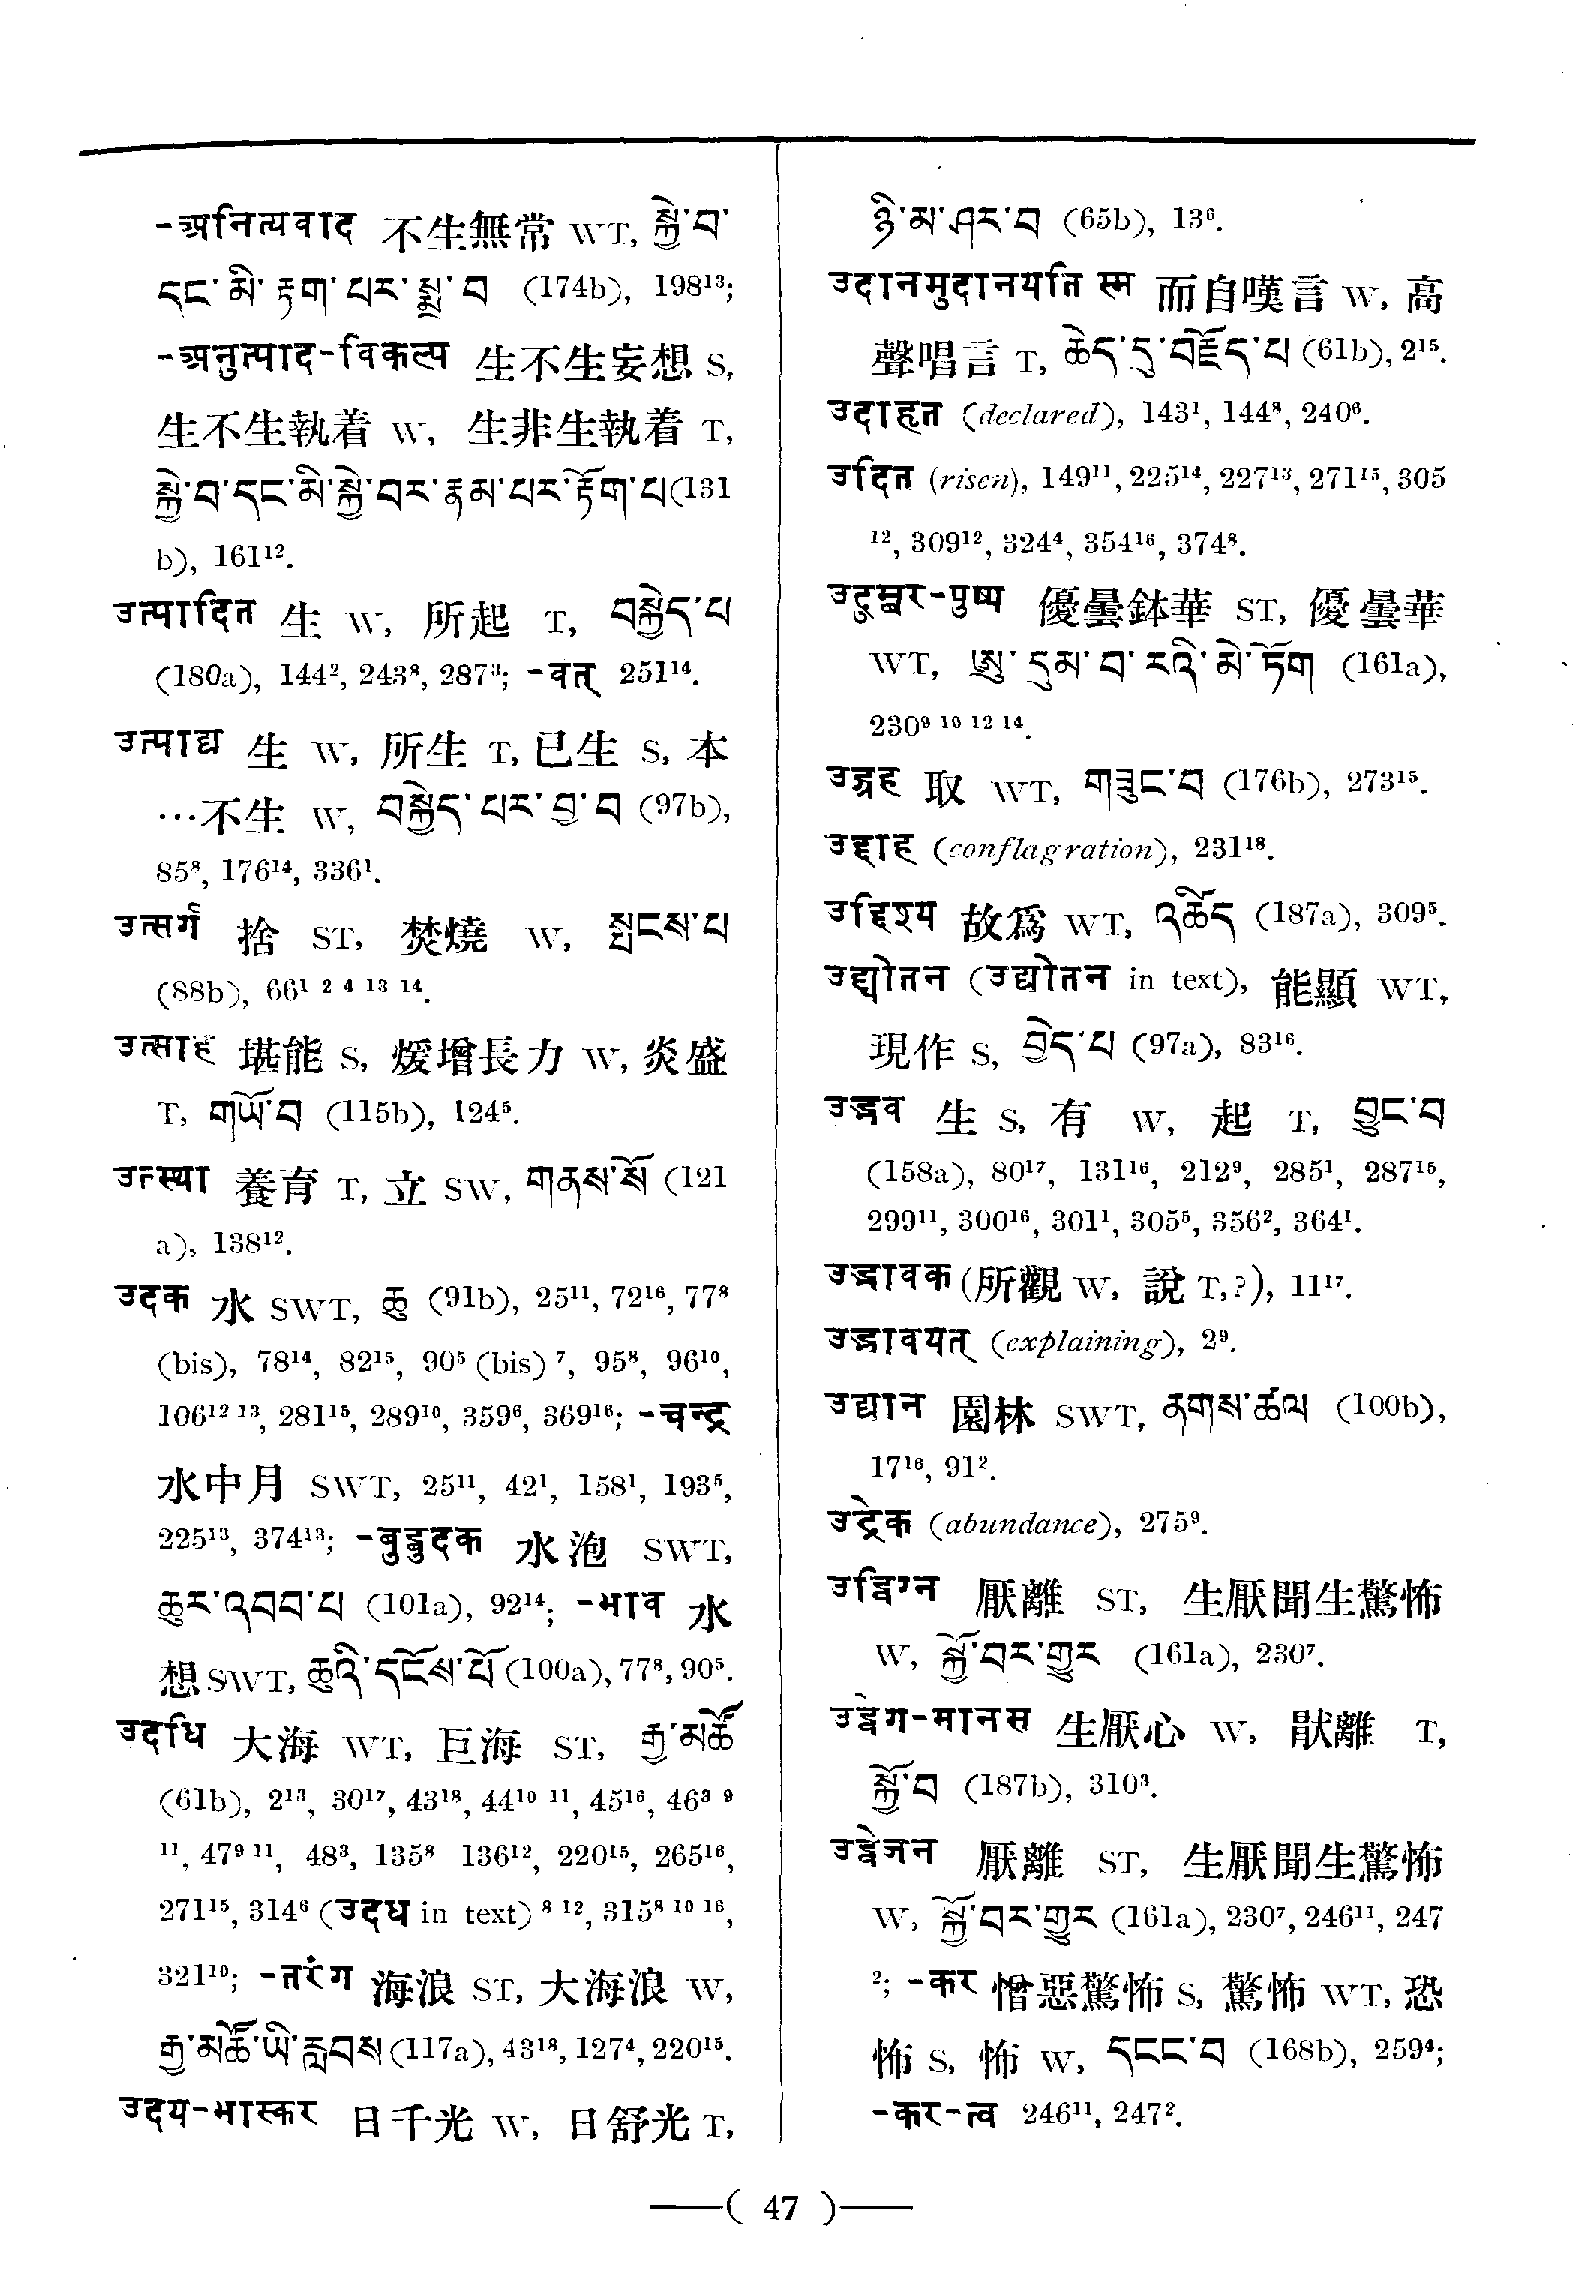 -अनित्यवाद 不生無常 WT, སྐྱེ་བ་
དང་མི་རྟག་པར་སྨྲ་བ (174b), 198¹³;
-अनुत्पाद-विकल्प 生不生妄想 S,
生不生執着 W, 生非生執着 T,
སྐྱེ་བ་དང་མི་སྐྱེ་བར་རྣམ་པར་རྟོག་པ(131
b), 161¹².
उत्पादित 生 W, 所起 T, བསྐྱེད་པ
(180a), 144², 243⁸, 287³; -वत् 251¹⁴.
उत्पाद्य 生 W, 所生 T, 已生 S, 本
…不生 W, བསྐྱེད་པར་བྱ་བ (97b),
85⁸, 176¹⁴, 336¹.
उत्सर्ग 捨 ST, 焚燒 W, སྤངས་པ
(88b), 66¹ ² ⁴ ¹³ ¹⁴.
उत्साह 堪能 S, 煖增長力 W, 炎盛
T, གཡོ་བ (115b), 124⁵.
उत्स्था 養育 T, 立 SW, གནས་སོ (121
a), 138¹².
उदक 水 SWT, ཆུ (91b), 25¹¹, 72¹⁶, 77⁸
(bis), 78¹⁴, 82¹⁵, 90⁵ (bis) ⁷, 95⁸, 96¹⁰,
106¹² ¹³, 281¹⁵, 289¹⁰, 359⁶, 369¹⁶; -चन्द्र
水中月 SWT, 25¹¹, 42¹, 158¹, 193⁵,
225¹³, 374¹³; -बुद्बुदक 水泡 SWT,
ཆུར་འབབ་པ (101a), 92¹⁴; -भाव 水
想 SWT, ཆུའི་དངོས་པོ (100a), 77⁸, 90⁵.
उदधि 大海 WT, 巨海 ST, རྒྱ་མཚོ
(61b), 2¹³, 30¹⁷, 43¹⁸, 44¹⁰ ¹¹, 45¹⁶, 46³ ⁹
¹¹, 47⁹ ¹¹, 48³, 135⁸ 136¹², 220¹⁵, 265¹⁶,
271¹⁵, 314⁶ (उदध in text) ⁸ ¹², 315⁸ ¹⁰ ¹⁶,
321¹⁰; -तरंग 海浪 ST, 大海浪 W,
རྒྱ་མཚོ་ཡི་རླབས (117a), 43¹⁸, 127⁴, 220¹⁵.
उदय-भास्कर 日千光 W, 日舒光 T,
ཉི་མ་ཤར་བ (65b), 13⁶.
उदानमुदानयति स्म 而自嘆言 W, 高
聲唱言 T, ཆེད་དུ་བརྗོད་པ (61b), 2¹⁵.
उदाहृत (declared), 143¹, 144⁸, 240⁶.
उदित (risen), 149¹¹, 225¹⁴, 227¹³, 271¹⁵, 305
¹², 309¹², 324⁴, 354¹⁶, 374⁸.
उदुम्बर-पुष्प 優曇鉢華 ST, 優曇華
WT, ཨུ་དུམ་བ་རའི་མེ་ཏོག (161a),
230⁹ ¹⁰ ¹² ¹⁴.
उद्ग्रह 取 WT, གཟུང་བ (176b), 273¹⁵.
उद्दाह (conflagration), 231¹⁸.
उद्दिश्य 故爲 WT, འཚེད (187a), 309⁵.
उद्द्योतन (उद्योतन in text), 能顯 WT,
現作 S, བྱེད་པ (97a), 83¹⁶.
उद्भव 生 S, 有 W, 起 T, བྱུང་བ
(158a), 80¹⁷, 131¹⁶, 212⁹, 285¹, 287¹⁵,
299¹¹, 300¹⁶, 301¹, 305⁵, 356², 364¹.
उद्भावक (所觀 W, 說 T,?), 11¹⁷.
उद्भावयत् (explaining), 2⁹.
उद्यान 園林 SWT, ནགས་ཚལ (100b),
17¹⁶, 91².
उद्रेक (abundance), 275⁹.
उद्विग्न 厭離 ST, 生厭聞生驚怖
W, སྐྱོ་བར་གྱུར (161a), 230⁷.
उद्वेग-मानस 生厭心 W, 猒離 T,
སྐྱོ་བ (187b), 310³.
उद्वेजन 厭離 ST, 生厭聞生驚怖
W, སྐྱོ་བར་གྱུར (161a), 230⁷, 246¹¹, 247
²; -कर 憎惡驚怖 S, 驚怖 WT, 恐
怖 S, 怖 W, དངང་བ (168b), 259⁴;
-कर-त्व 246¹¹, 247².
—( 47 )—